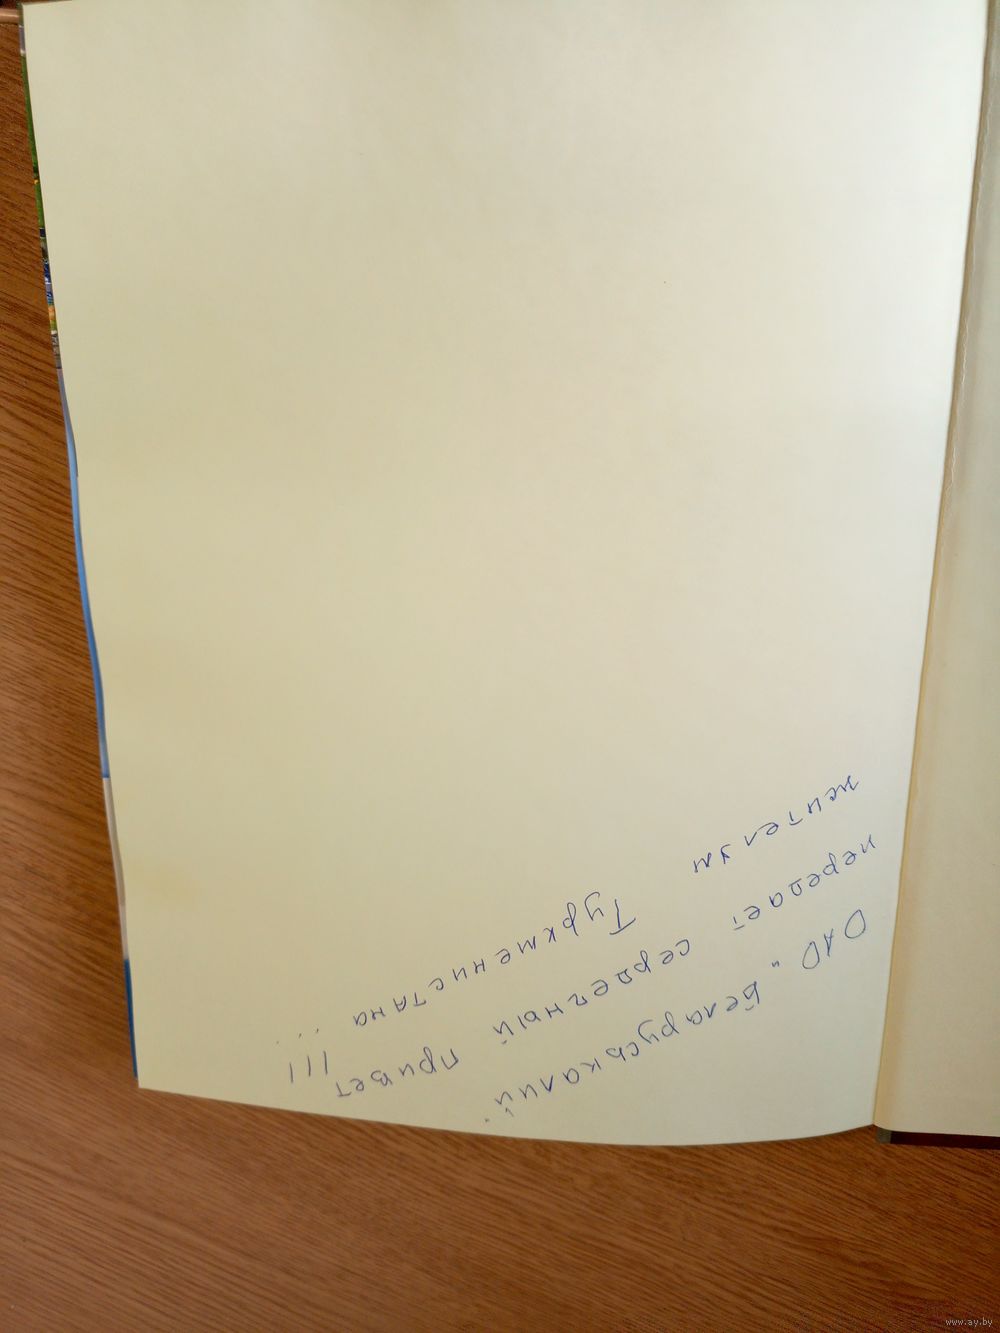 ОАО "Беларуськалий"
передает сердечный привет
жителям Туркменистана !!!
www.ay.by